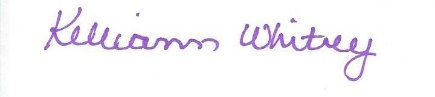 Kelliann Whitney